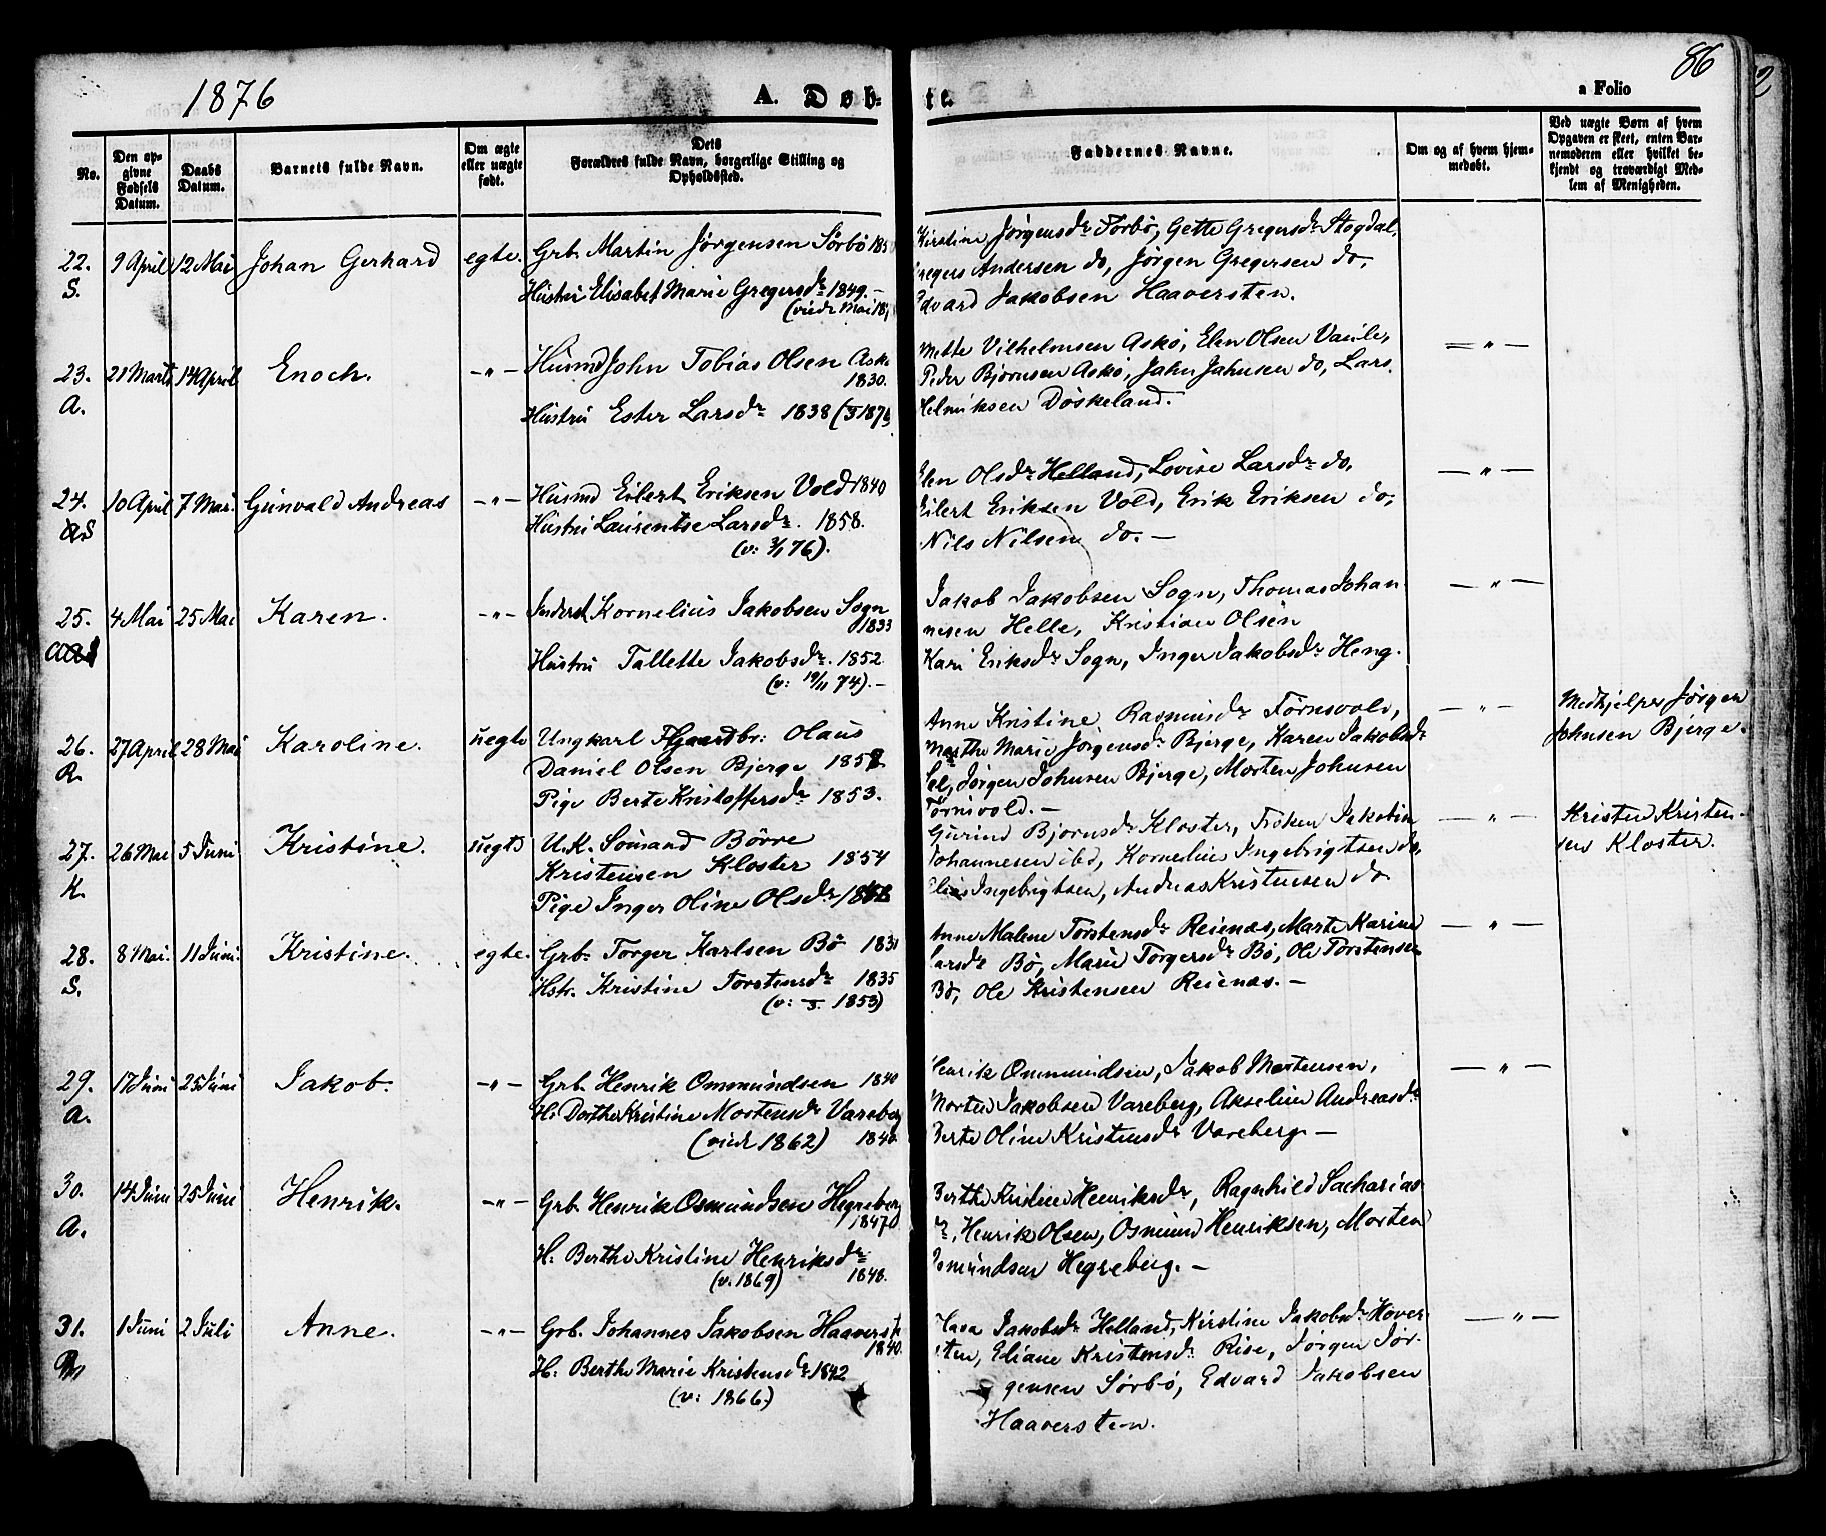 1876
A. Døb-
te.
86
a Folio
No.
Den op-
givne
Fødsels
Datum.
Daabs
Datum.
Barnets fulde Navn.
Om ægte
eller uægte
født.
Dets
Forældres fulde Navn, borgerlige Stilling og
Opholdssted.
Faddernes Navne.
Om og af hvem hjem-
medøbt.
Ved uægte Børn af hvem
Opgaven er skeet, enten Bar-
nemoderen eller hvilket be-
kjendt og troværdigt Med-
lem af Menigheden.
22.
S.
9 April
12 Mai
Johan Gerhard
egte.
Grb. Martin Jørgensen Sörbö
Hustru Elisabet Marie Gregersdr 1849.-
(viede Mai 18
Kirstine Jørgensdr Sørbø, Gette Gregersdr Stogdal,
Gregers Andersen do, Jørgen Gregersen do,
Edvard Jakobsen Haaversten.
23.
A.
21 Marts
14 April
Enoch.
-"-
Husmd John Tobias Olsen Askø
1830.
Hustru Ester Larsdr 1838
Mette Vilhelmsen Askø, Elen Olsen Vaule,
Peder Bjørnsen Askø, Jahn Jahnsen do, Lars
Helmiksen Døskeland.
="-
24.
S
10 April
7 Mai
Gunvald Andreas
-"-
Husmd Eilert Eriksen Vold 1840
Hustru Laurentse Larsdr. 1858.
76).
Elen Olsdr Helland, Lovise Larsdr do,
Eilert Eriksen Vold, Erik Eriksen do,
Nils Nilsen do.-
-"-
25.
4 Mai
25 Mai
Karen.
-"-
Inderst Kornelius Jakobsen Sogn
1833
Hustru Tallette Jakobsdr. 1852
(v: 19/11 74).-
Jakob Jakobsen Sogn, Thomas Johan-
nesen Helle, Kristian Olsen
Kari Eriksdr Sogn, Inger Jakobsdr Heng.
-"-
26.
R.
27 April
28 Mai
Karoline.
uegte
Ungkarl Olaus
Daniel Olsen Bjerge
Pige Berte Kristoffersdr 1853.
Anne Kristine Rasmusdr Tørnsvold,
Marthe Marie Jørgensdr Bjerge, Karen Jakobsdr
Sel, Jørgen Johnsen Bjerge, Morten Johnsen
Tørnsvold.-
-"-
Medhjelper Jørgen
Johnsen Bjerge.
27.
K.
26 Mai
5 Juni
Kristine.
uegte
U.K. Sömand Börre
Kristensen Kloster 1854
Pige Inger Oline Olsdr
Gurine Bjornsdr Kloster, Frøken Jakobine
Johannesen ibd, Kornelius Ingebrigtsen do,
Elias Ingebrigtsen, Andreas Kristensen do
-"-
Kristen Kristen-
sen Kloster.
28.
S.
8 Mai.
11 Juni.
Kristine.
egte.
Grb. Torger Karlsen Bö
Hstr. Kristine Torstensdr 1835
1853)
Anne Malene Torstensdr Reienæs, Marte Karine
Larsdr Bø, Marie Torgersdr Bø, Ole Torstensen
Bø, Ole Kristensen Reienæs.-
-"-
29.
A.
17 Juni
25 Juni
Jakob.
-"-
Grb. Henrik Ommundsen 1840
H. Dorthe Kristine Mortensdr Vareberg
(viede 1862) 1840
Henrik Ommundsen, Jakob Mortensen,
Morten Jakobsen Vareberg, Akseline Andreasdr
Berte Oline Kristensdr Vareberg-
-"-
30.
A.
14 Juni
25 Juni
Henrik.
-"-
Grb. Henrik Osmundsen Hegreberg
1847
H. Berthe Kristine Henriksdr
(v. 1869) 1848.
Berthe Kristine Henriksdr, Ragnhild Sacharias-
dr, Henrik Olsen, Osmund Henriksen, Morten
Osmundsen Hegreberg.-
31.
1 Juni
2 Juli
Anne.
-"-
Grb. Johannes Jakobsen Haaverst
1840.
H. Berthe Marie Kristensdr 1842
(v: 1866.)
Jakobsdr Helland, Kirstine Jakobsdr Hover-
sten, Eliane Kristensdr Rise, Jørgen Jør-
gensen Sørbø, Edvard Jakobsen
Haaversten.
-"-